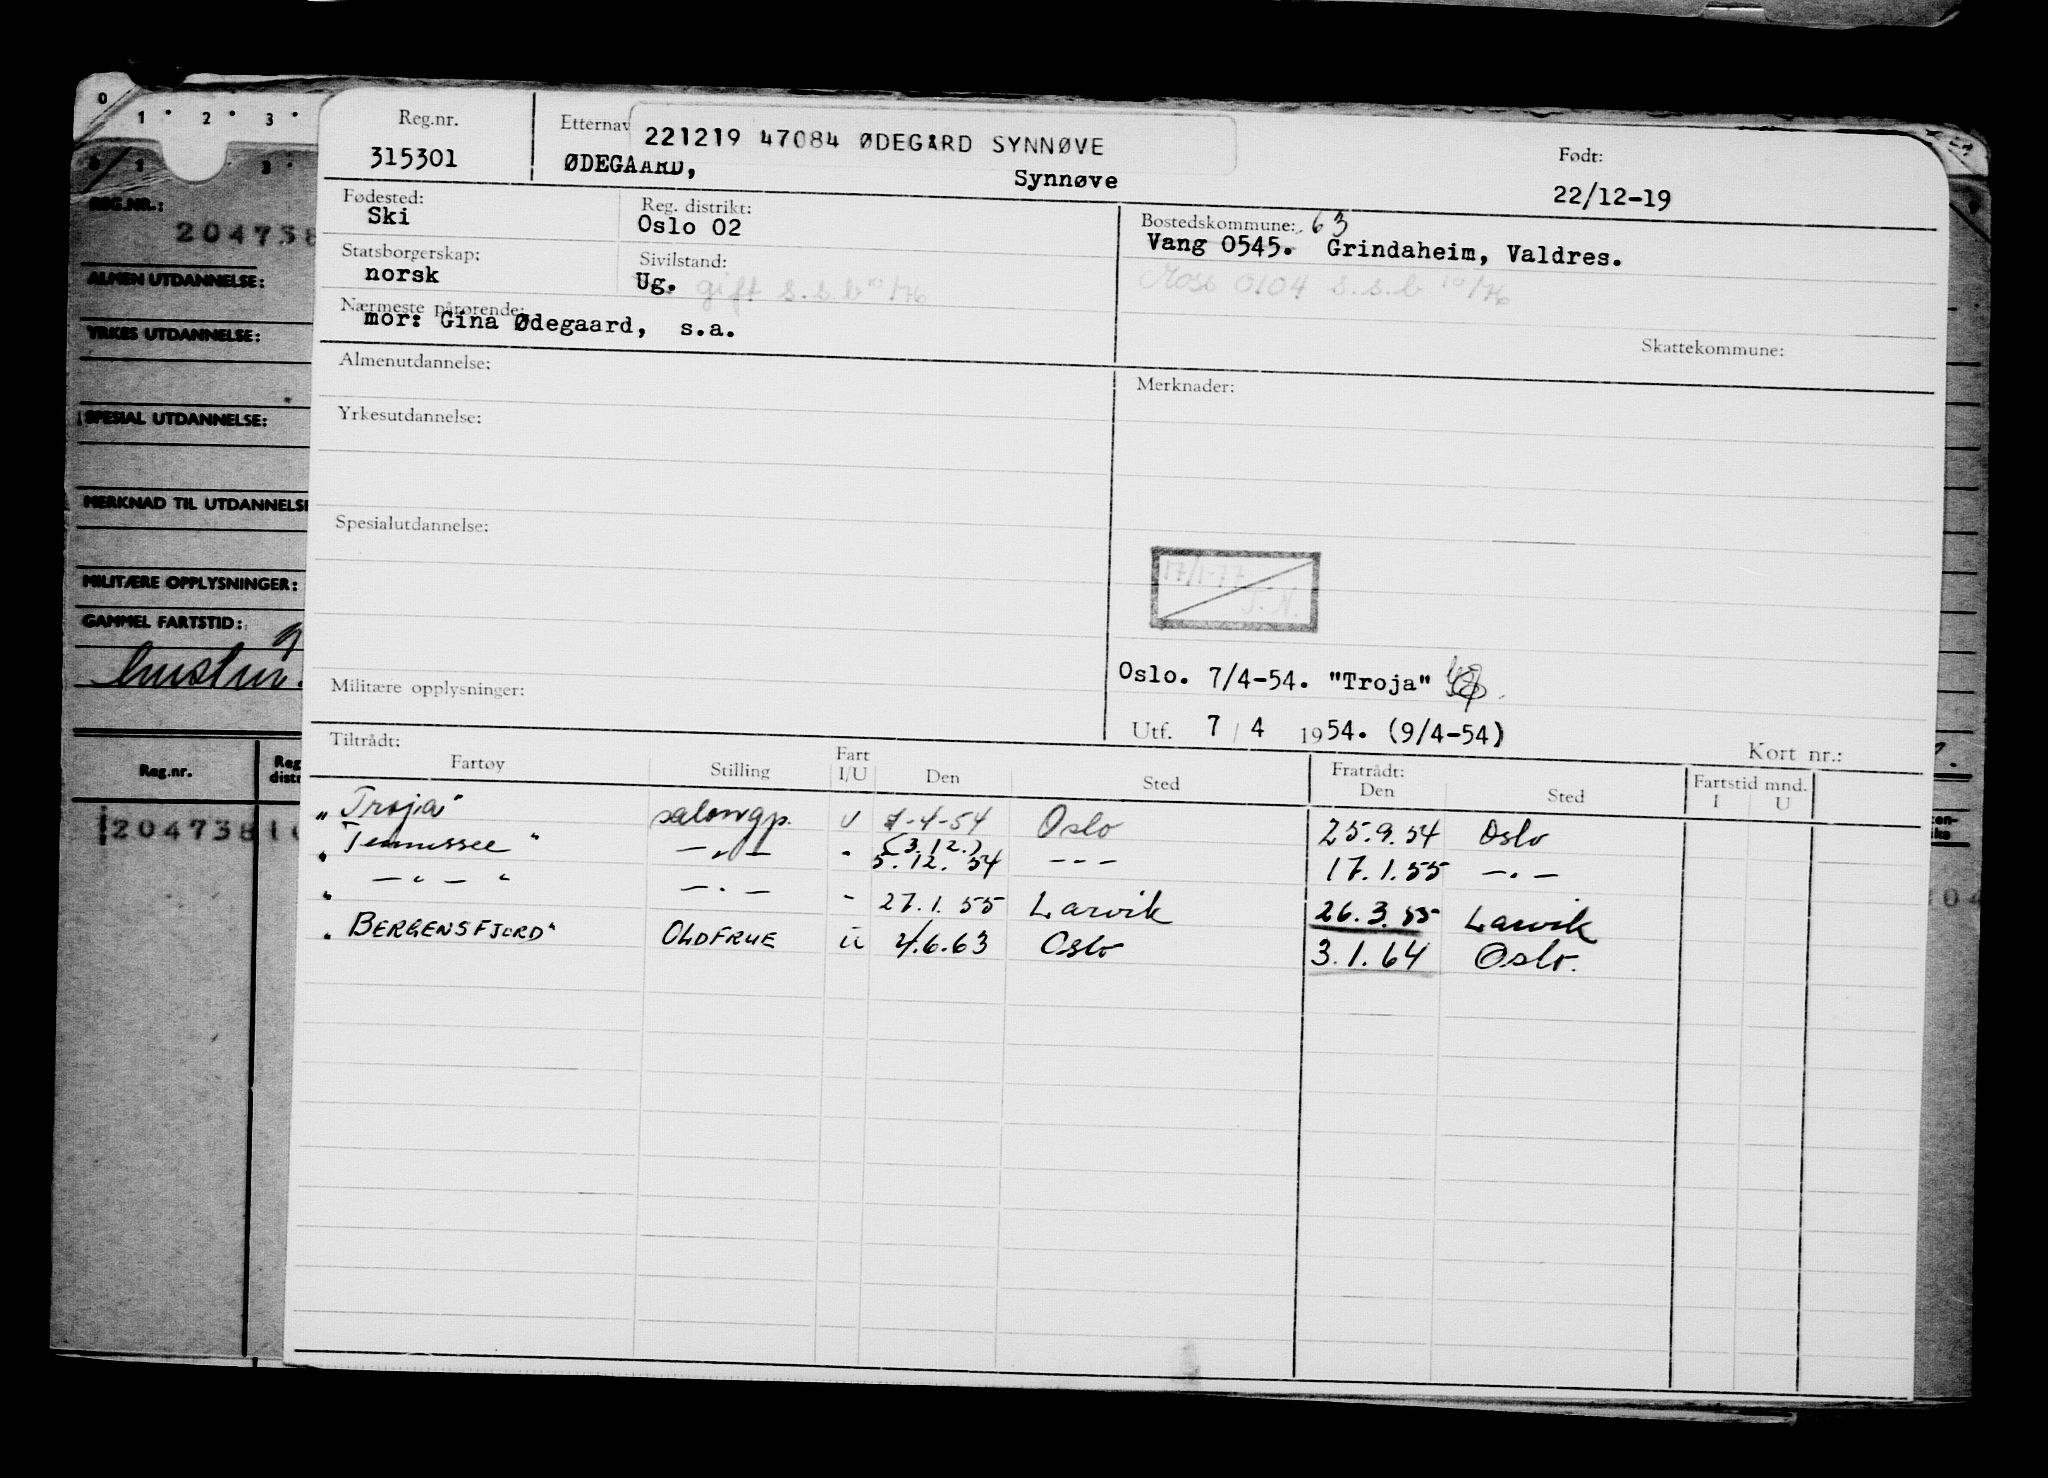 0 1 2 3
0 1 3
REG.NR.:
204738
ALMEN UTDANNELSE:
YRKES UTDANNELSE:
SPESIAL UTDANNELSE:
MERKNAD TIL UTDANNELSE
MILITÆRE OPPLYSNINGER:
GAMMEL FARTSTID:
Reg.nr. Reg. distr
204738
Reg.nr. Etternav Født:
221219 47084 ØDEGÅRD SYNNØVE
315301 ØDEGAARD, Synnøve 22/12-19
Fødested: Reg. distrikt: Bostedskommune: 63
Ski Oslo 02 Vang 0545. Grindaheim, Valdres.
Statsborgerskap: Sivilstand:
norsk Ug. gift s.s.b 10/76 Moss 0104 s.s.b 10/76
Nærmeste pårørende:
mor: Gina Ødegaard, s.a.
Skattekommune:
Almenutdannelse: Merknader:
Yrkesutdannelse:
Spesialutdannelse:
17/1-77
T. N.
Oslo. 7/4-54. "Troja"
Militære opplysninger:
Utf. 7 / 4 1954. (9/4-54)
Kort nr.:
Tiltrådt: Fratrådt:
Fartøy Stilling Fart I/U Den Sted Den Sted Fartstid mnd. I U
"Troja" salongp. U 7-4-54 Oslo 25.9.54 Oslo
"Tennessee" —„— - (3.12.) 5.12.54 - - - 17.1.55 —„—
" —"— " —„— - 27.1.55 Larvik 26.3.55 Larvik
"BERGENSFJORD" OLDFRUE U 4.6.63 Oslo 3.1.64 Oslo.